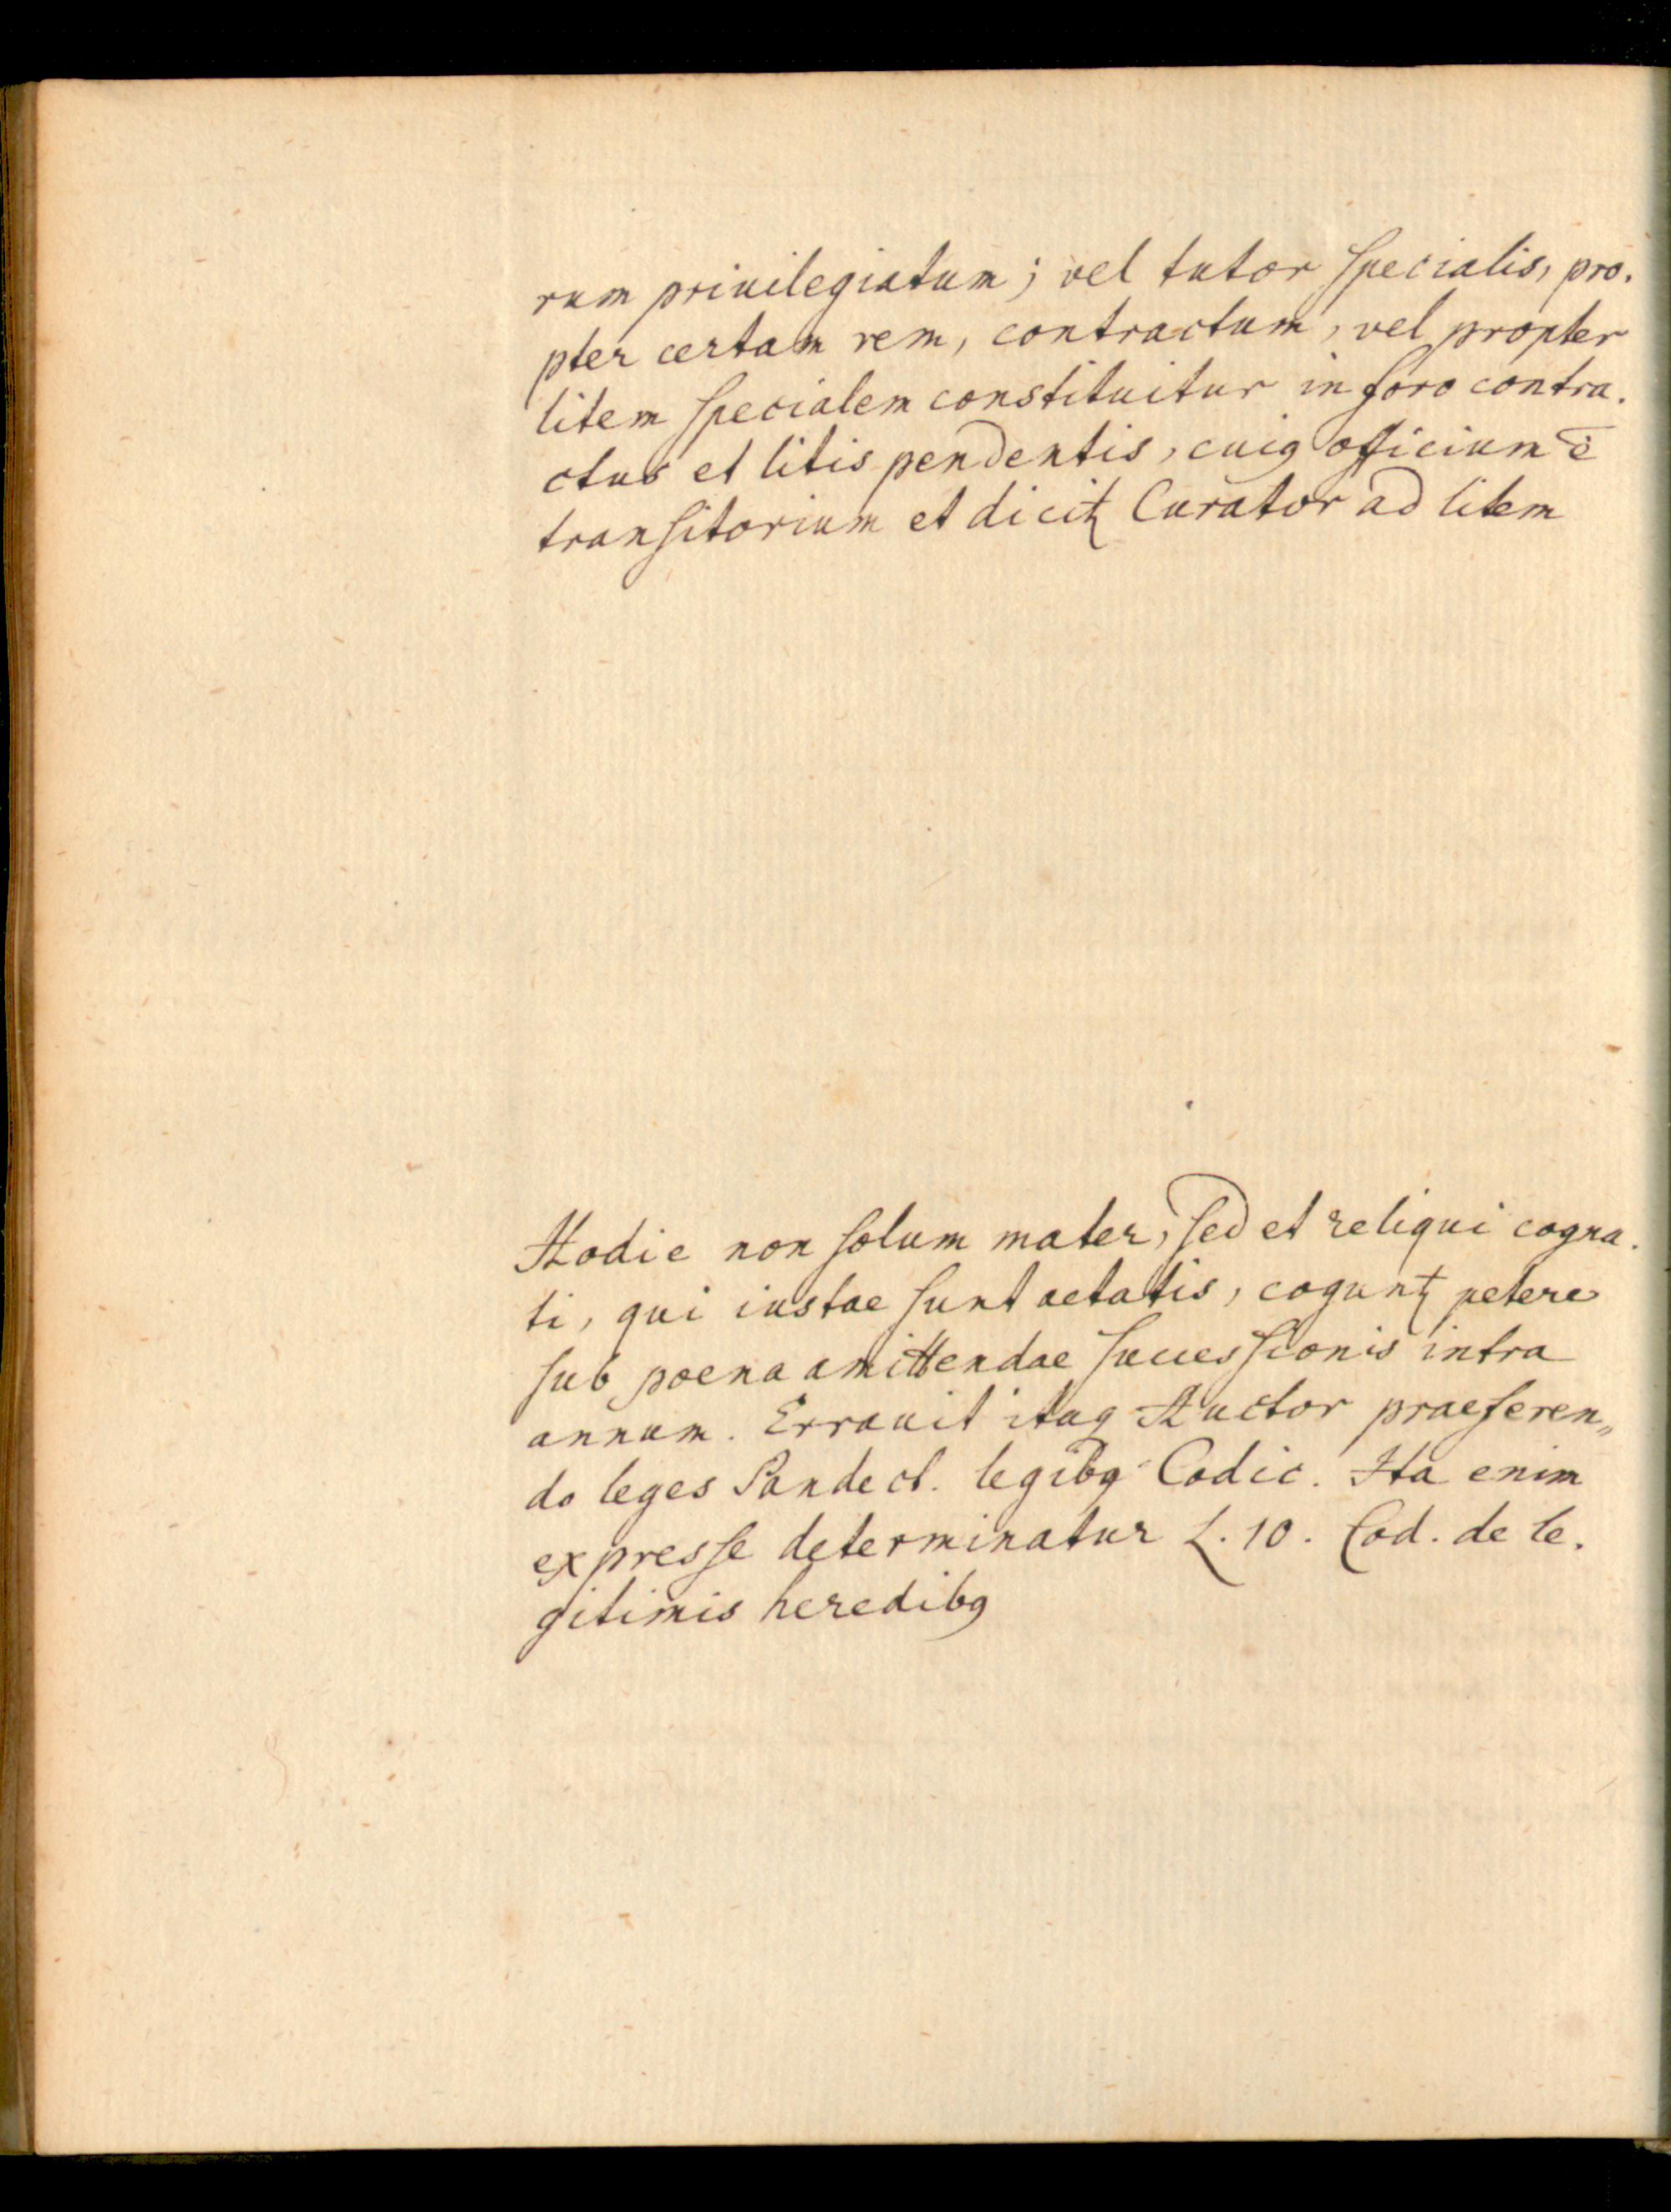 rum priuilegiatum; vel tutor ſpecialis, pro.
pter certam rem, contractum, vel propter
litem ſpecialem constituitur in foro contra.
ctus et litis pendentis, cuiꝯ officium ē
tranſitorium et dicitꝛ Curator ad litem
Hodie non ſolum mater, ſed et reliqui cogna.
ti, qui iustae ſunt aetatis, coguntꝛ petere
ſub poena amittendae ſuccesſionis intra
annum. Errauit itaq Auctor praeferen„
do leges Pandect. legibꝯ Codic. Ita enim
expresſe determinatur L. 10. Cod. de le.
gitimis heredibꝯ